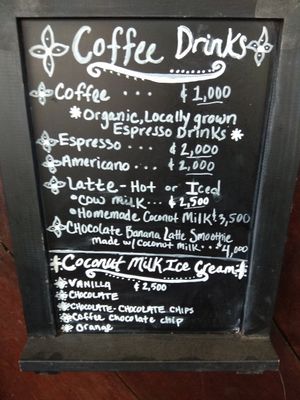 Coffee Drinks
Coffee ... ¢1,000
*Organic, Locally grown
Espresso Drinks*
Espresso ... ¢2,000
Americano ... ¢2,000
Latte - Hot or Iced
*Cow milk... ¢2,500
*Homemade Coconut Milk ¢3,500
Chocolate Banana Latte Smoothie
made w/ Coconut milk... ¢4,000
Coconut Milk Ice Cream
Vanilla ¢2,500
Chocolate
Chocolate-Chocolate Chips
Coffee Chocolate chip
Orange